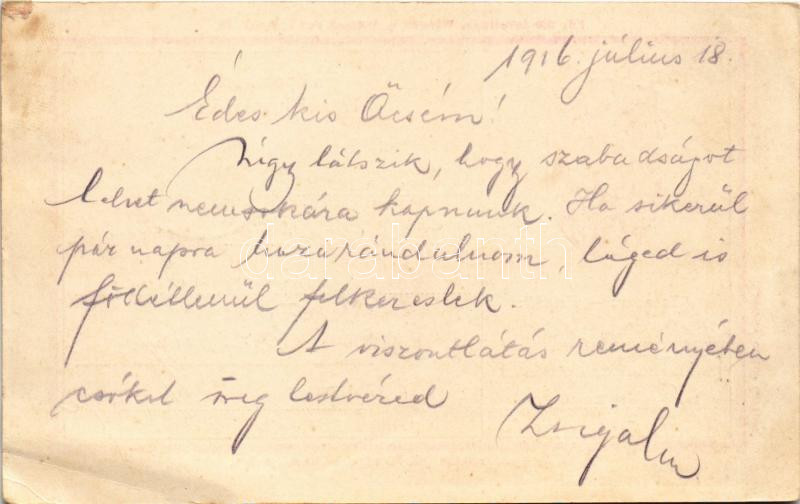 1916. július 18.
Édes kis Öcsém!
Úgy látszik, hogy szabadságot
lehet nemsokára kapnunk. Ha sikerül
pár napra hazarándulnom, téged is
föltétlenül felkereslek.
A viszontlátás reményében
csókol öreg testvéred
darabanth